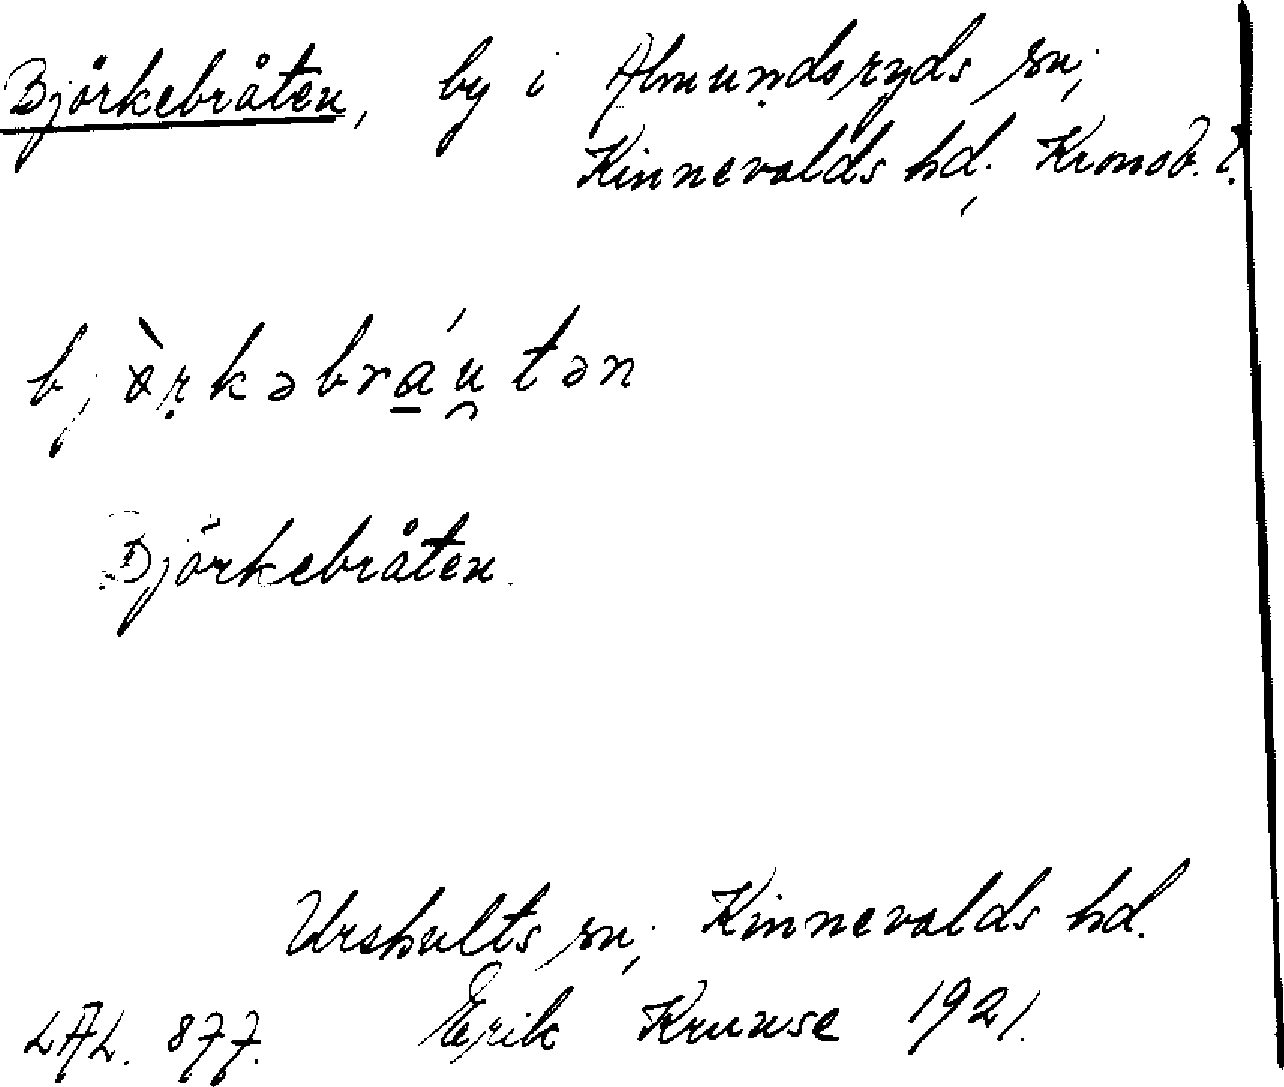 Björkebråten, by i Almundsryds sn,
Kinnevalds hd, Kronob. l.
bjö̀rkəbráu̯tən
Björkebråten
Urshults sn, Kinnevalds hd.
LAL. 877. Erik Kruuse 1921.